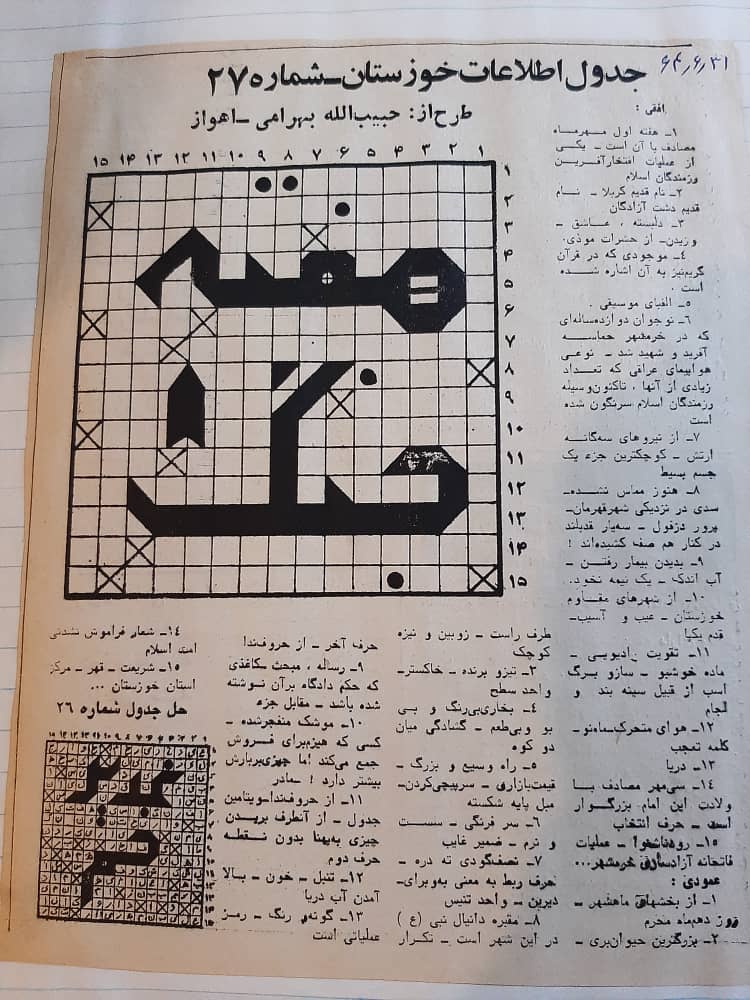 ۶۴٫۶٫۳۱
جدول اطلاعات خوزستان ـ شماره ۲۷
طرح از: حبیب‌الله بهرامی ـ اهواز
۱۵ ۱۴ ۱۳ ۱۲ ۱۱ ۱۰ ۹ ۸ ۷ ۶ ۵ ۴ ۳ ۲ ۱
۱
۲
۳
۴
۵
۶
۷
۸
۹
۱۰
۱۱
۱۲
۱۳
۱۴
۱۵
هفته
جنگ
افقی :
۱ـ هفته اول مهرماه
مصادف با آن است ـ یکی
از عملیات افتخارآفرین
رزمندگان اسلام
۲ـ نام قدیم کربلا ـ نام
قدیم دشت آزادگان
۳ـ دلبسته ، عاشق ـ
وزیدن ـ از حشرات موذی.
۴ـ موجودی که در قرآن
کریم‌نیز به آن اشاره شده
است .
۵ـ الفبای موسیقی .
۶ـ نوجوان دوازده‌ساله‌ای
که در خرمشهر حماسه
آفرید و شهید شد ـ نوعی
هواپیمای عراقی که تعداد
زیادی از آنها ، تاکنون‌وسیله
رزمندگان اسلام سرنگون شده
است
۷ـ از نیروهای سه‌گانه
ارتش ـ کوچکترین جزء یک
جسم بسیط
۸ـ هنوز مماس نشده‌ـ
سدی در نزدیکی شهرقهرمان‌ـ
پرور دزفول ـ سه‌یار قدبلند
در کنار هم صف کشیده‌اند !
۹ـ بدیدن بیمار رفتن ـ
آب اندک ـ یک نیمه نخود.
۱۰ـ از شهرهای مقاوم
خوزستان ـ عیب و آسیب‌ـ
قدم یکپا
۱۱ـ تقویت رادیویی ـ
ماده خوشبو ـ سازو برگ
اسب از قبیل سینه بند و
لجام
۱۲ـ هوای متحرک‌ـماه‌نوـ
کلمه تعجب
۱۳ـ دریا
۱۴ـ سی‌مهر مصادف با
ولادت این امام بزرگوار
است ـ حرف انتخاب
۱۵ـ روه‌ناشنوا ـ عملیات
فاتحانه آزادسازی خرمشهر...
عمودی :
۱ـ از بخشهای ماهشهر ـ
روز دهم‌ماه محرم
۲ـ بزرگترین حیوان‌بری ـ
طرف راست ـ زوبین و نیزه
کوچک
۳ـ تیزو برنده ـ خاکسترـ
واحد سطح
۴ـ بخاری‌بی‌رنگ و بی
بو وبی‌طعم ـ گشادگی میان
دو کوه
۵ـ راه وسیع و بزرگ ـ
قیمت‌بازاری ـ سرپیچی‌کردن‌ـ
مبل پایه شکسته
۶ـ سر فرنگی ـ سست
و نرم ـ ضمیر غایب
۷ـ نصف‌گودی ته دره ـ
حرف ربط به معنی به‌وبرای‌ـ
دیرین ـ واحد تنیس
۸ـ مقبره دانیال نبی (ع )
در این شهر است ـ تکرار
حرف آخر ـ از حروف‌ندا
۹ـ رساله ، مبحث ـکاغذی
که حکم دادگاه برآن نوشته
شده باشد ـ مقابل جزء
۱۰ـ موشک منفجرشده ـ
کسی که هیزم‌برای فروش
جمع می‌کند !ما چهزی‌بربارش
بیشتر دارد ! ـمادر
۱۱ـ از حروف‌نداـویتامین
جدول ـ از آنطرف بریدن
چیزی به‌پهنا بدون نقطه
حرف دوم
۱۲ـ تنبل ـ خون ـ بالا
آمدن آب دریا
۱۳ـ گونه‌ی رنگ ـ رمز
عملیاتی است
۱۴ـ شعار فراموش نشدنی
امت اسلام
۱۵ـ شریعت ـ قهر ـ مرکز
استان خوزستان ...
حل جدول شماره ۲۶